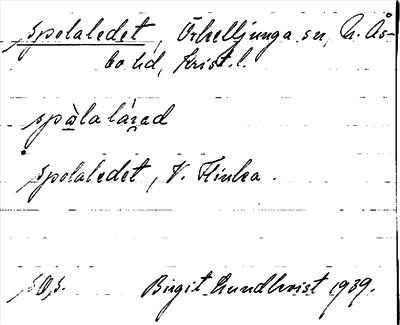 spolaledet, Örkelljunga sn, N. Ås-
bo hd, Krist. l.
spàlalárad
spolaledet, V. Flinka.
s. O, s. Birgit Lundkvist 1939.